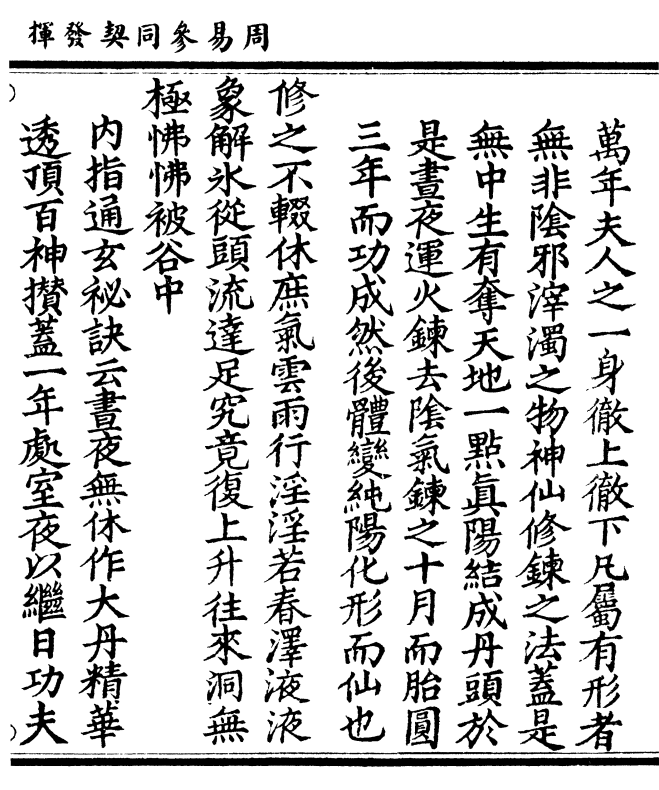 周易參同契發揮
萬年夫人之一身徹上徹下凡屬有形者
無非陰邪滓濁之物神仙修鍊之法蓋是
無中生有奪天地一點眞陽結成丹頭於
是晝夜運火鍊去陰氣鍊之十月而胎圓
三年而功成然後體變純陽化形而仙也
修之不輟休庶氣雲雨行淫淫若春澤液液
象解氷從頭流達足究竟復上升往來洞無
極怫怫被谷中
內指通玄祕訣云晝夜無休作大丹精華
透頂百神攅蓋一年處室夜以繼日功夫